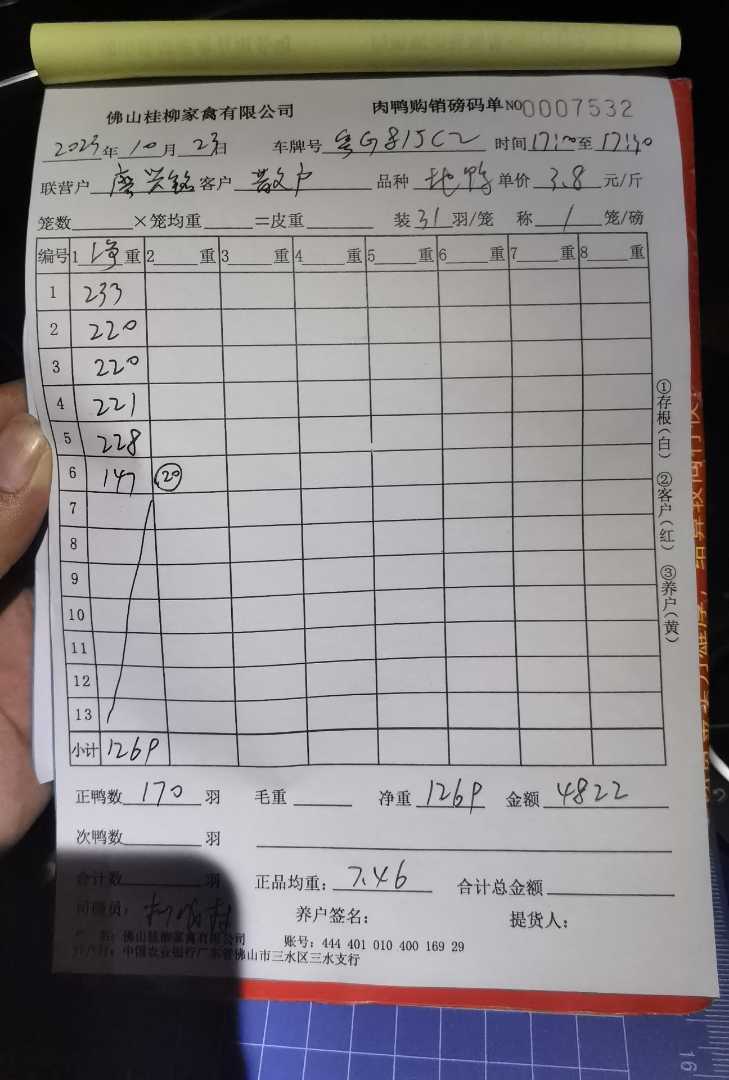 佛山桂柳家禽有限公司 肉鸭购销磅码单 NO0007532
2023年10月23日 车牌号粤G815C2 时间17:00至17:40
联营户 客户散户 品种 鸭 单价3.8元/斤
笼数 ×笼均重 =皮重 装31羽/笼 称1笼/磅
编号 1净重 2 重 3 重 4 重 5 重 6 重 7 重 8 重
1 233
2 220
3 220
4 221
5 228
6 147 20
7
8
9
10
11
12
13
小计 1269
①存根(白) ②客户(红) ③养户(黄)
正鸭数170羽 毛重 净重1269 金额4822
次鸭数 羽
合计数 羽 正品均重:7.46 合计总金额
司磅员: 养户签名: 提货人:
户 名:佛山桂柳家禽有限公司 账号:444 401 010 400 169 29
开户行:中国农业银行广东省佛山市三水区三水支行
16